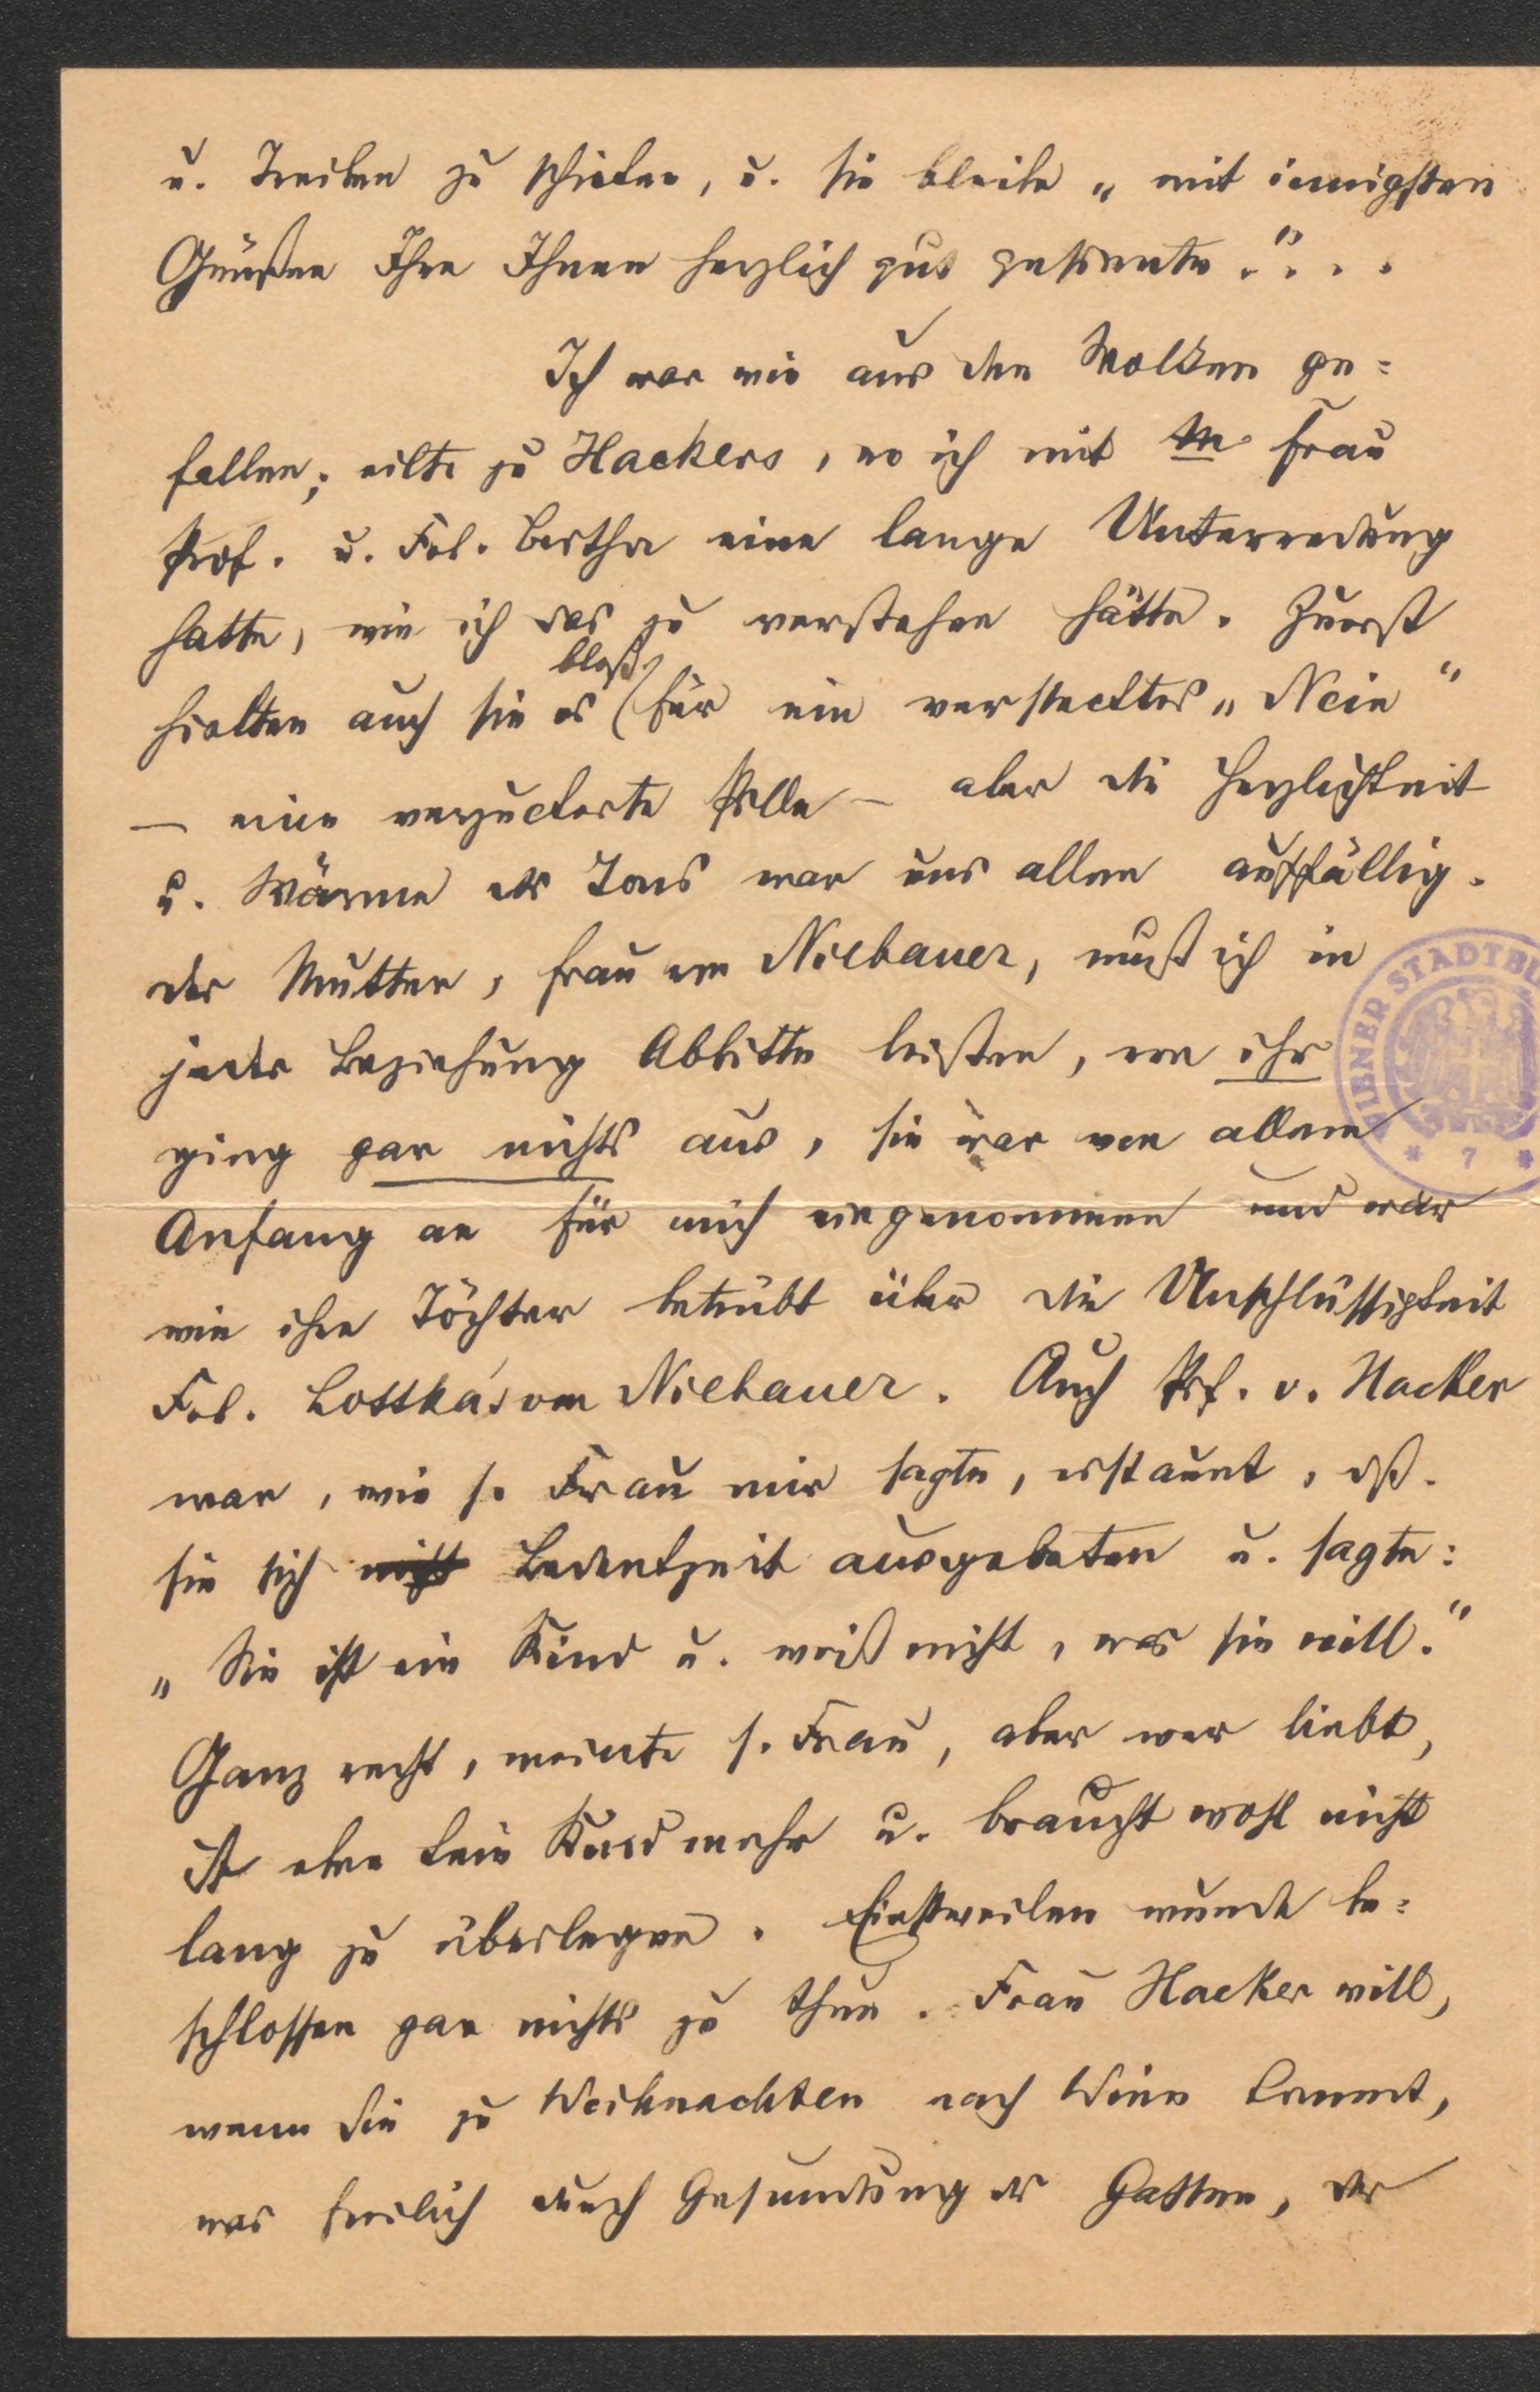 u. Treiben zu schicken, u. sie bleibe „mit innigsten
Grüßen Ihre Ihnen herzlich gut gesinnte." . . .
Ich war wie aus den Wolken ge=
fallen; eilte zu Hackers, wo ich mit Frau
Prof. u. Frl. Bertha eine lange Unterredung
hatte, wie ich das zu verstehen hätte. Zuerst
bloß
hielten auch sie es für ein verstecktes „Nein"
— eine verzuckerte Pille — aber die Herzlichkeit
u. Wärme des Tons war uns allen auffällig.
Der Mutter, Frau von Niebauer, muß ich in
jeder Beziehung Abbitte leisten, von ihr
ging gar nichts aus, sie war von allem
Anfang an für mich eingenommen und war
wie ihre Töchter betrübt über die Unschlüssigkeit
Frl. Lottka's von Niebauer. Auch Prf. v. Hacker
war, wie s. Frau mir sagte, erstaunt, dß.
sie sich nicht Bedenkzeit ausgebeten u. sagte:
„Sie ist ein Kind u. weiß nicht, was sie will."
Ganz recht, meinte s. Frau, aber wer liebt,
ist eben kein Kind mehr u. braucht wohl nicht
lang zu überlegen. Einstweilen wurde be=
schlossen gar nichts zu thun. Frau Hacker will,
wenn sie zu Weihnachten nach Wien kommt,
was freilich durch Gesundung des Gatten, der
WIENER STADTBI
* 7 *